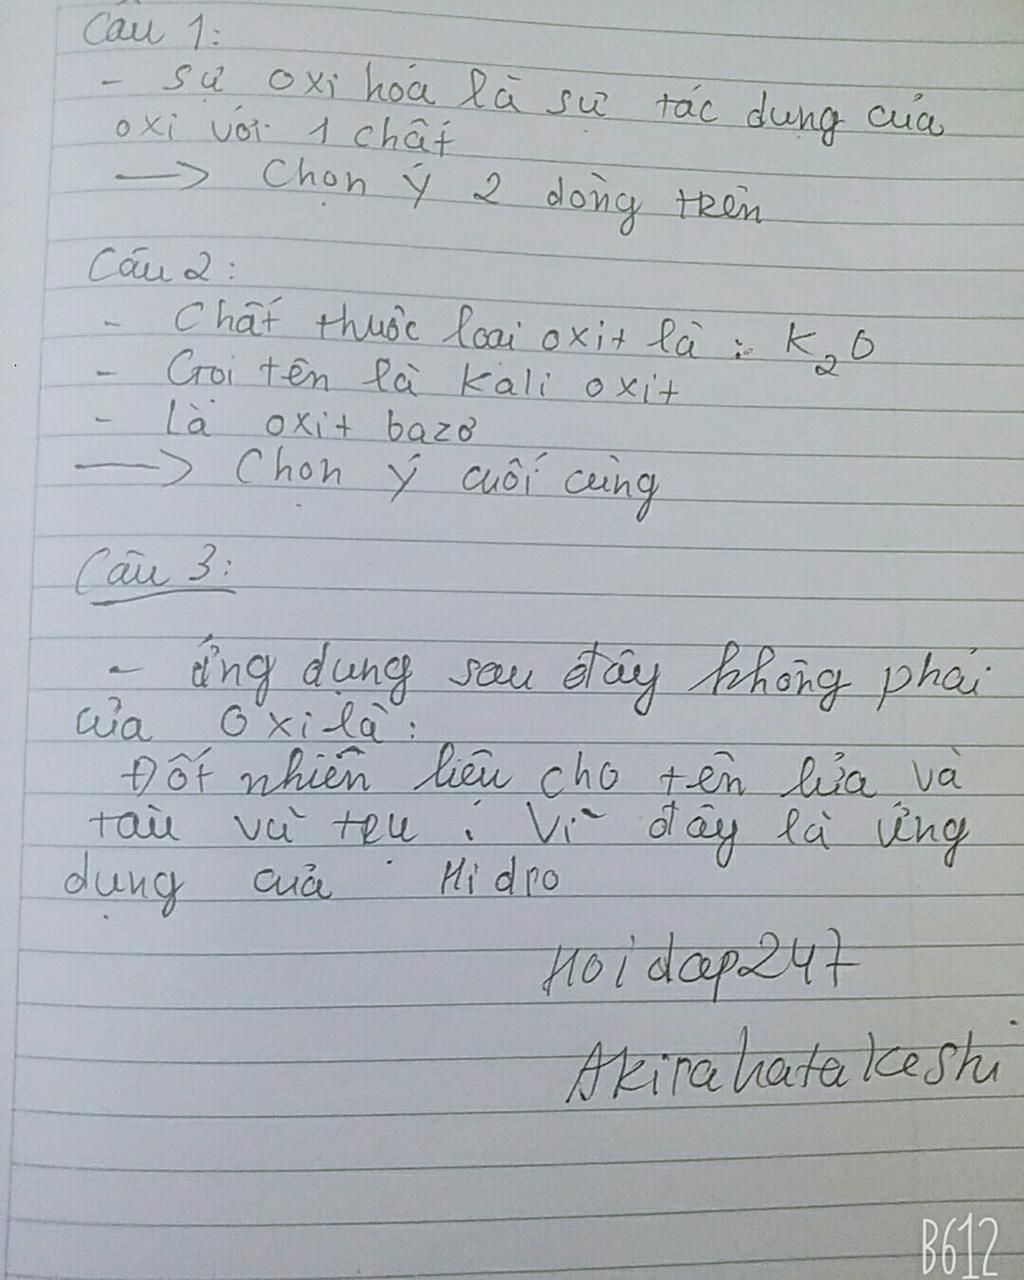 Câu 1:
- sự oxi hóa là sự tác dụng của
oxi với 1 chất
→ Chọn ý 2 dòng trên
Câu 2:
- Chất thuộc loại oxit là : K₂O
- Gọi tên là Kali oxit
- Là oxit bazơ
→ Chọn ý cuối cùng
Câu 3:
- ứng dụng sau đây không phải
của Oxi là:
Đốt nhiên liệu cho tên lửa và
tàu vũ trụ . Vì đây là ứng
dụng của Hidro
Hoidap247
Akirahatakeshi
B612